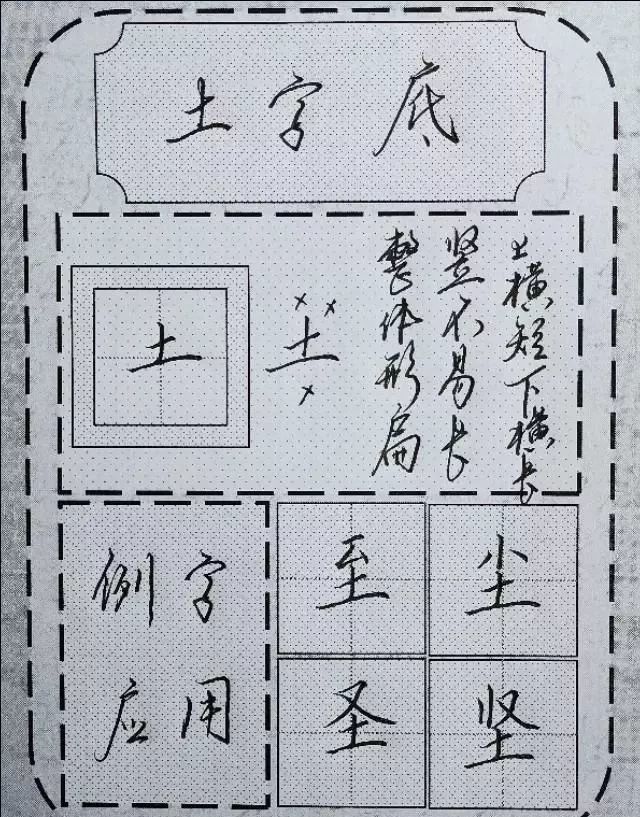 土字底
土
土
上横短下横长
竖不易长
整体形扁
例字
应用
至
尘
圣
坚